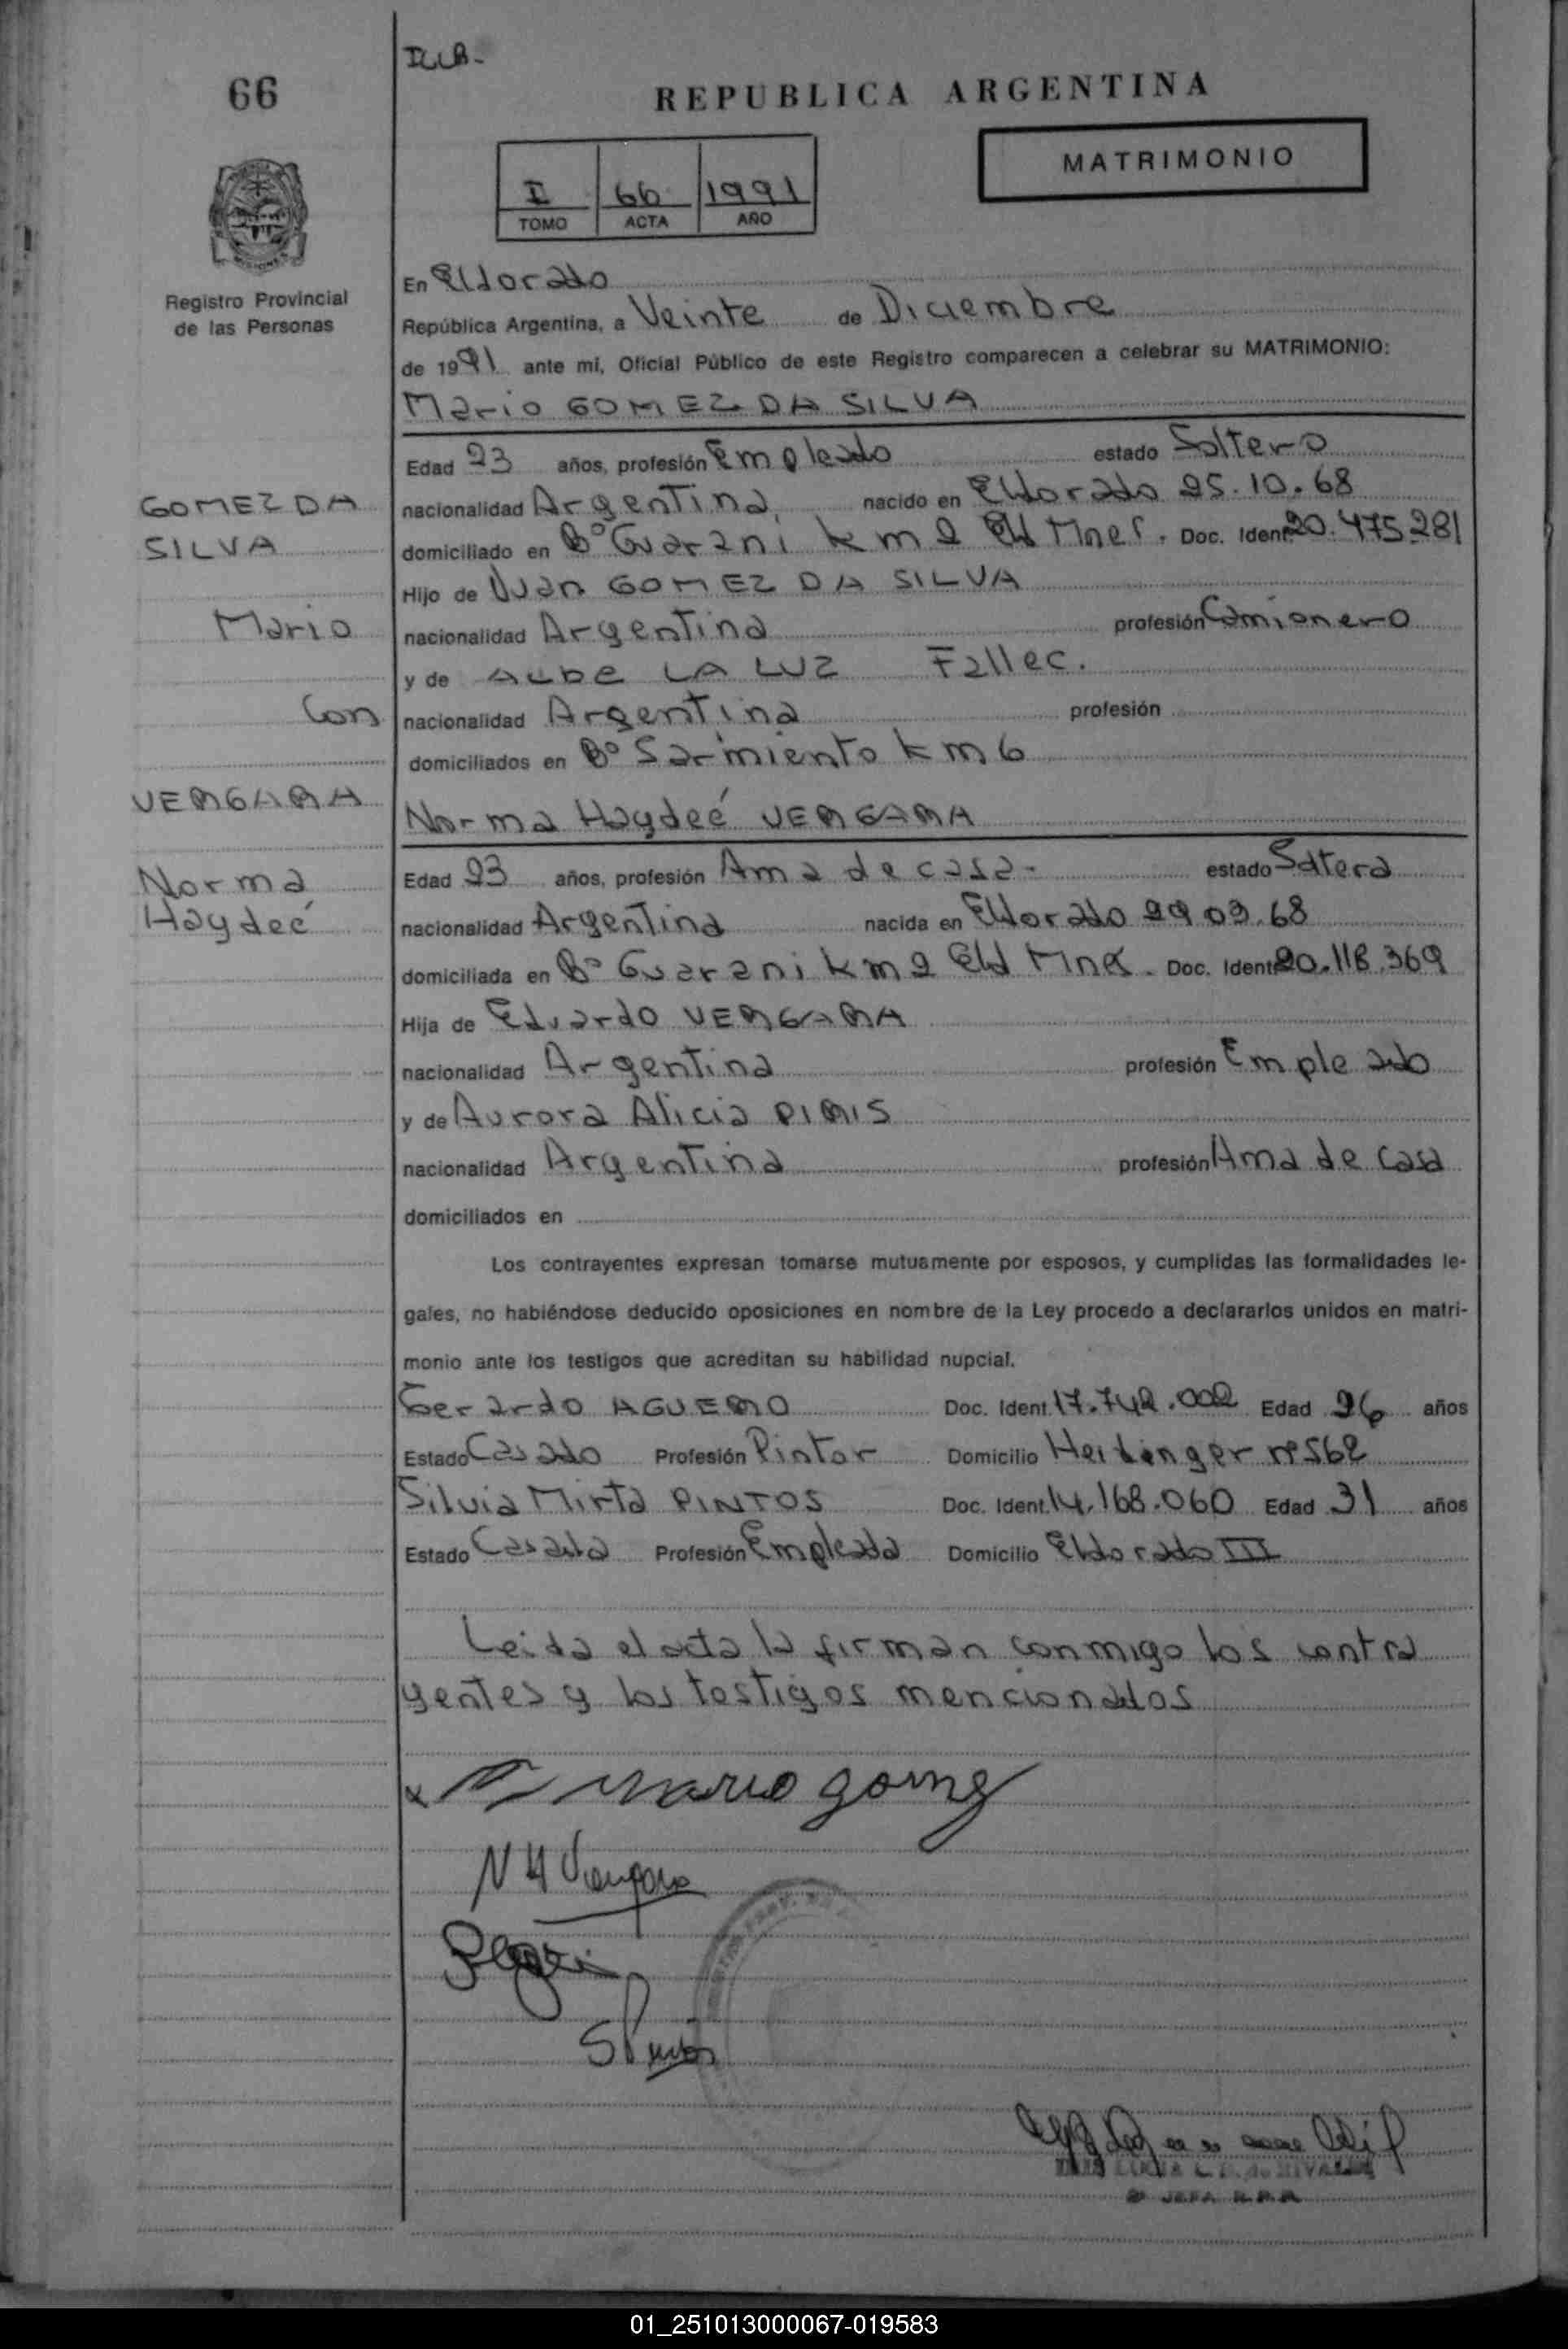 66
REPUBLICA ARGENTINA
MATRIMONIO
I 66 1991
TOMO ACTA AÑO
Registro Provincial
de las Personas
En Eldorado
República Argentina, a Veinte de Diciembre
de 1991 ante mí, Oficial Público de este Registro comparecen a celebrar su MATRIMONIO:
Mario GOMEZ DA SILVA
Edad 23 años, profesión Empleado estado Soltero
GOMEZ DA
SILVA
Mario
Con
VERGARA
Norma
Haydeé
nacionalidad Argentina nacido en Eldorado 25.10.68
domiciliado en Bº Guarani km 2 Eld Mnes. Doc. Ident 20.475.281
Hijo de Juan GOMEZ DA SILVA
nacionalidad Argentina profesión Camionero
y de ALDE LA LUZ Fallec.
nacionalidad Argentina profesión
domiciliados en Bº Sarmiento km 6
Norma Haydeé VERGARA
Edad 23 años, profesión Ama de casa. estado Soltera
nacionalidad Argentina nacida en Eldorado 29 03.68
domiciliada en Bº Guarani km 2 Eld Mnes. Doc. Ident 20.118.369
Hija de Eduardo VERGARA
nacionalidad Argentina profesión Empleado
y de Aurora Alicia PIRIS
nacionalidad Argentina profesión Ama de Casa
domiciliados en
Los contrayentes expresan tomarse mutuamente por esposos, y cumplidas las formalidades le-
gales, no habiéndose deducido oposiciones en nombre de la Ley procedo a declararlos unidos en matri-
monio ante los testigos que acreditan su habilidad nupcial.
Gerardo AGUERO Doc. Ident. 17.742.002 Edad 26 años
Estado Casado Profesión Pintor Domicilio nº 562
Silvia Mirta PINTOS Doc. Ident. 14.168.060 Edad 31 años
Estado Casada Profesión Empleada Domicilio Eldorado III
Leida el acta la firman conmigo los contra
yentes y los testigos mencionados
x Mario gomez
N H Vergara
S Pintos
JEFA R.P.P.
01_251013000067-019583